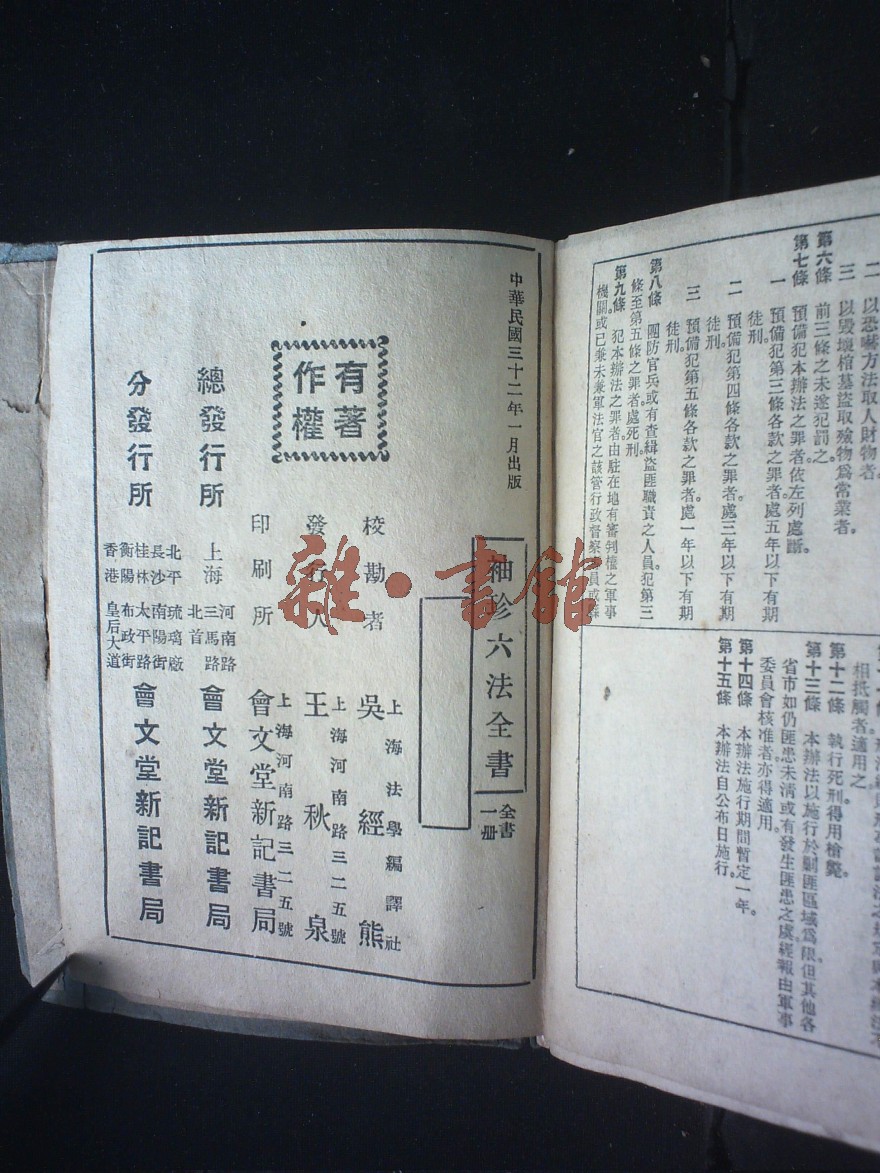 二 以恐嚇方法取人財物者
三 以毀壞棺墓盜取殮物爲常業者。
第六條 前三條之未遂犯罰之
第七條 預備犯本辦法之罪者依左列處斷
一 預備犯第三條各款之罪者處五年以下有期
徒刑。
二 預備犯第四條各款之罪者。處三年以下有期
徒刑。
三 預備犯第五條各款之罪者。處一年以下有期
徒刑。
第八條 團防官兵或有查緝盜匪職責之人員。犯第三
條至第五條之罪者。處死刑。
第九條 犯本辦法之罪者。由駐在地有審判權之軍事
機關。或已兼未兼軍法官之該管行政督察
相抵觸者適用之
第十二條 執行死刑得用槍斃。
第十三條 本辦法以施行於剿匪區域爲限但其他各
省市如仍匪患未清或有發生匪患之處經報由軍事
委員會核准者亦得適用。
第十四條 本辦法施行期間暫定一年。
第十五條 本辦法自公布日施行。
中華民國三十二年一月出版
袖珍六法全書
全書一册
有著作權
校勘者 上海法學編譯社 吳經熊
發行人 上海河南路三二五號 王秋泉
印刷所 上海河南路三二五號 會文堂新記書局
總發行所 上海 河南路三馬路北首 會文堂新記書局
分發行所 北平琉璃廠 長沙南陽街 桂林太平路 衡陽布政街 香港皇后大道 會文堂新記書局
雜·書館